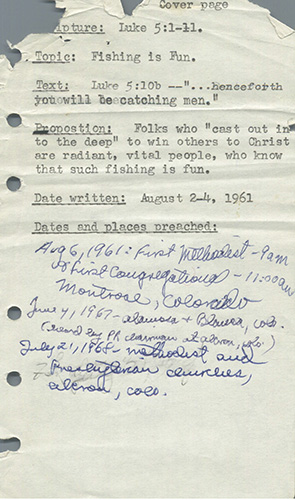 Cover page
ipture: Luke 5:1-11.
Topic: Fishing is Fun.
Text: Luke 5:10b --"...henceforth
you will be catching men."
Propostion: Folks who "cast out in
to the deep" to win others to Christ
are radiant, vital people, who know
that such fishing is fun.
Date written: August 2-4, 1961
Dates and places preached:
Aug 6, 1961: First Methodist - 9am
& First Congregational - 11:00am
Montrose, Colorado
June 4, 1967 - Alamosa & Blanca, Colo.
(heard by PR chairman at Akron, Colo.)
July 21, 1968 - Methodist and
Presbyterian churches,
Akron, Colo.